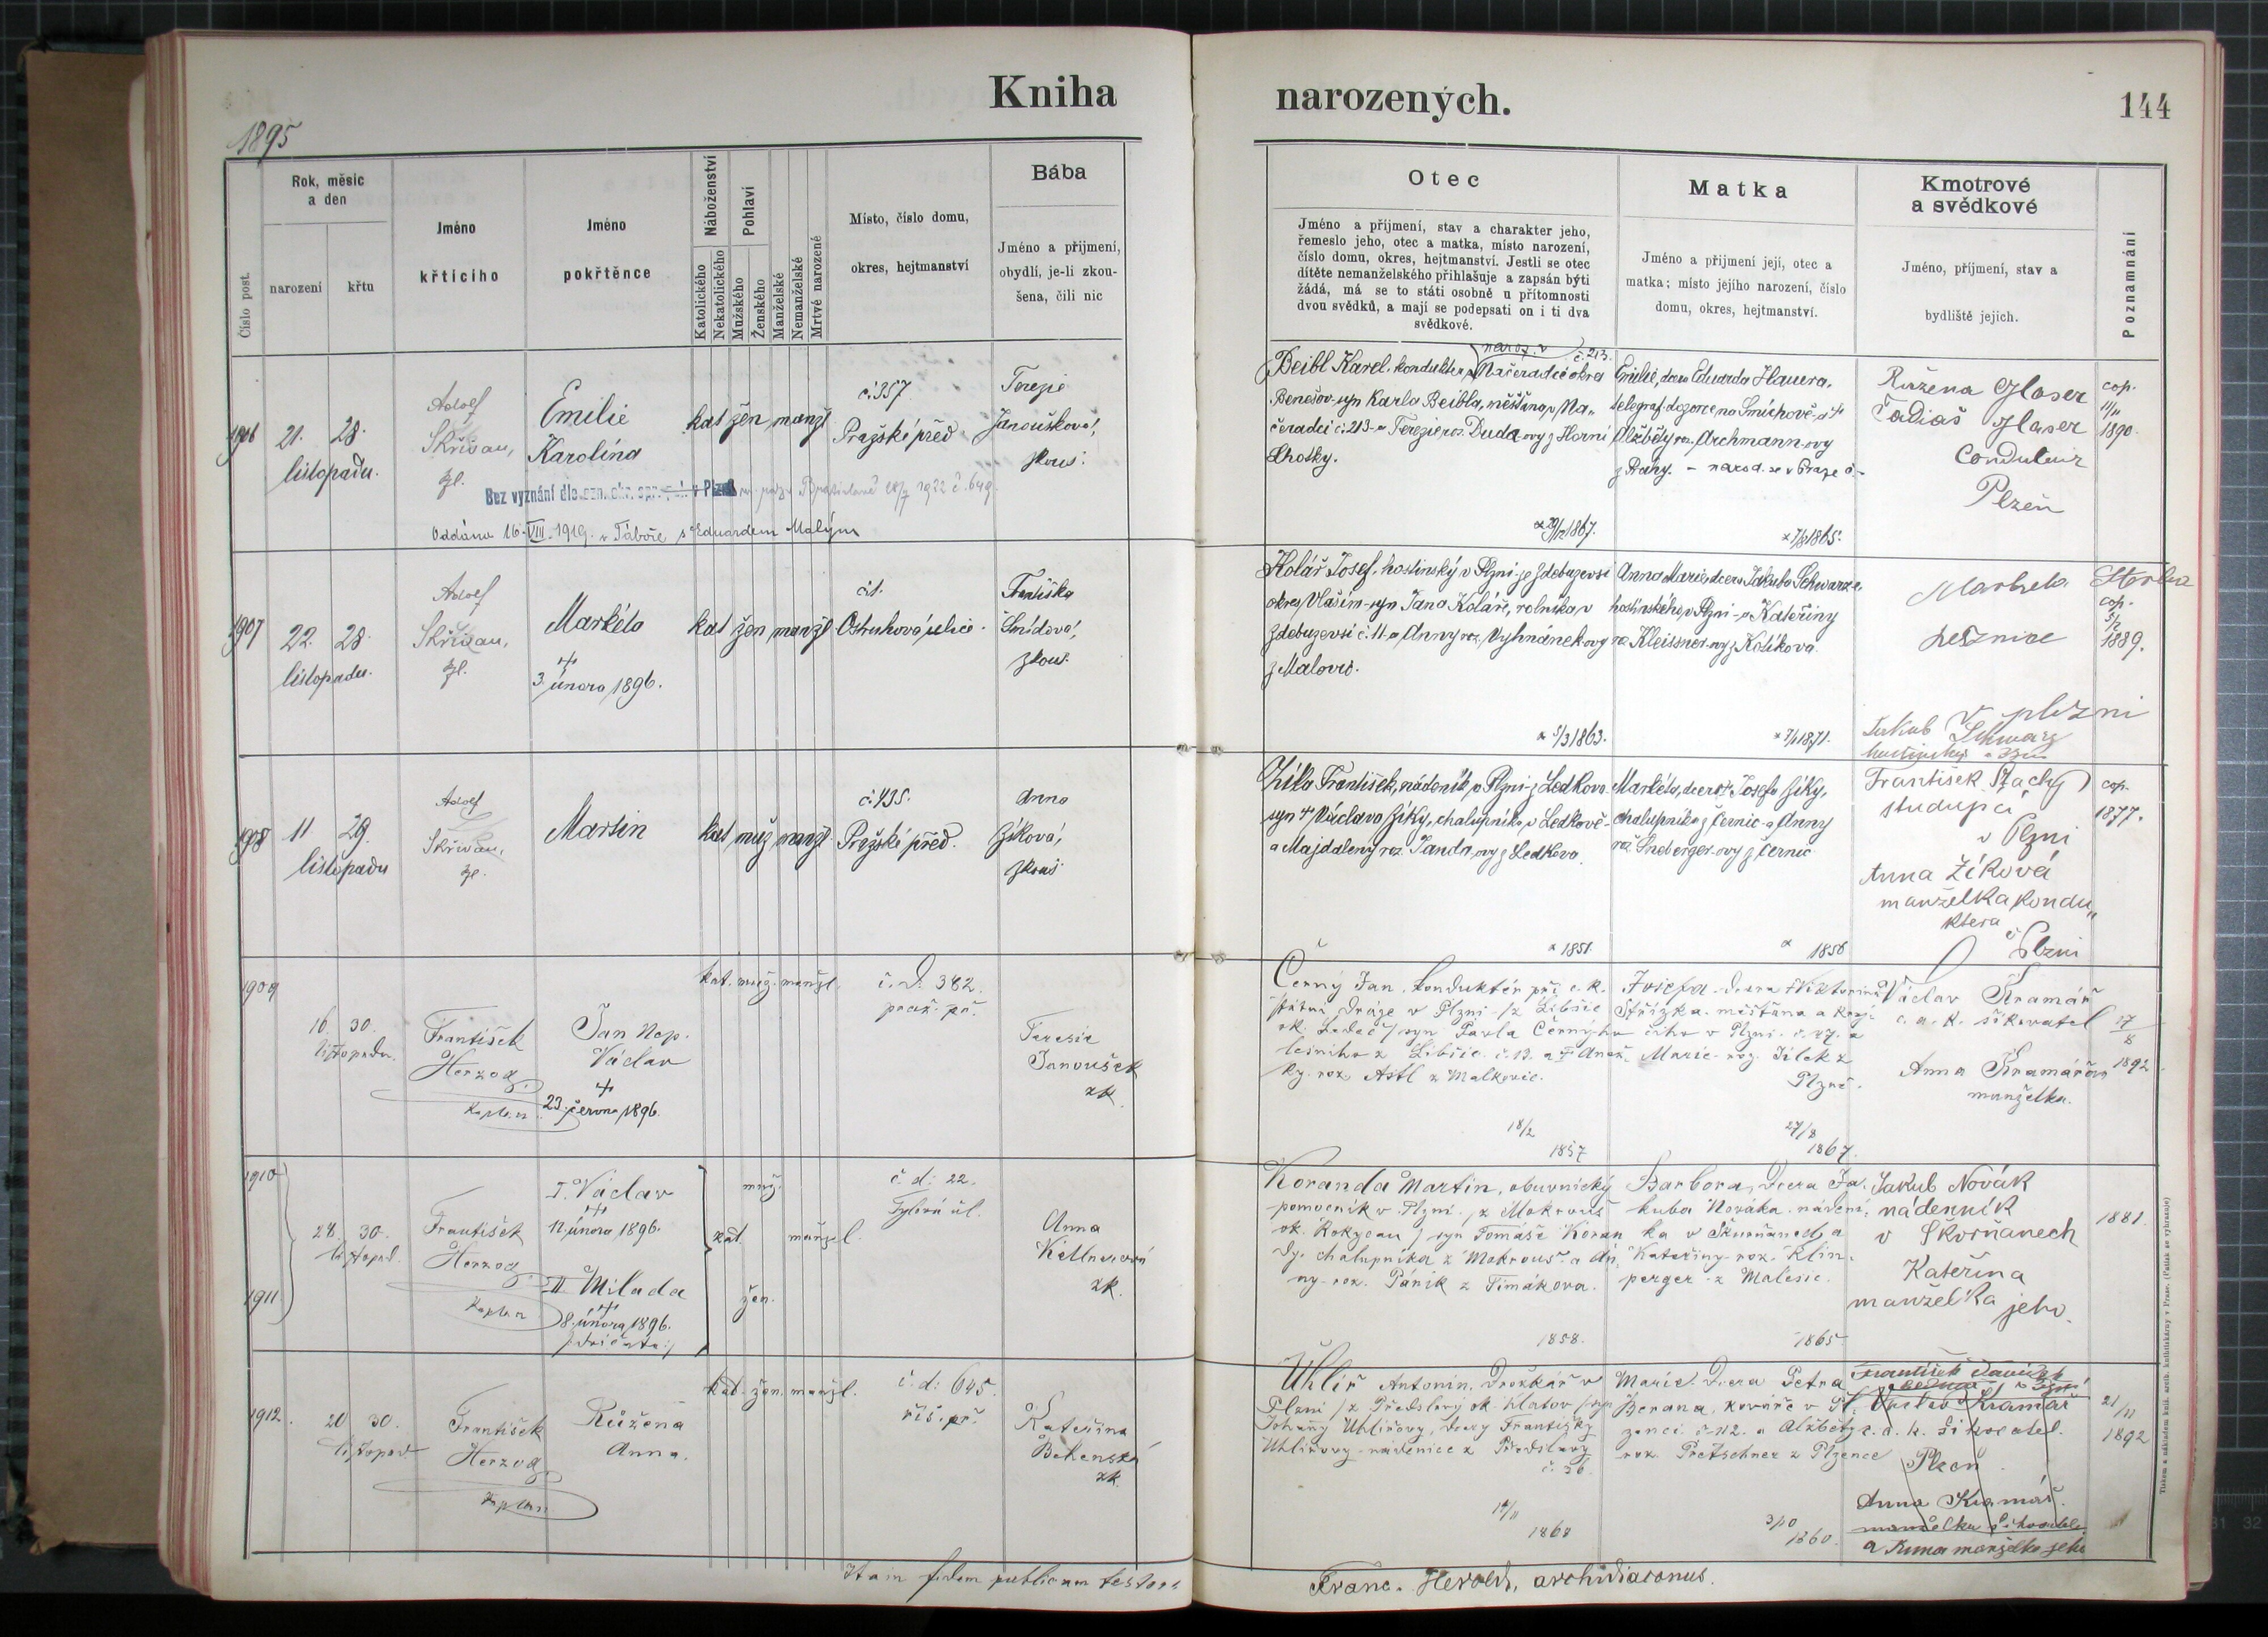 Kniha
narozených.
144
1895
Číslo post.
Rok, měsíc
a den
narození
křtu
Jméno
křticího
Jméno
pokřtěnce
Náboženství
Katolického
Nekatolického
Pohlaví
Mužského
Ženského
Manželské
Nemanželské
Mrtvě narozené
Místo, číslo domu,
okres, hejtmanství
Bába
Jméno a příjmení,
obydlí, je-li zkou-
šena, čili nic
Otec
Jméno a příjmení, stav a charakter jeho,
řemeslo jeho, otec a matka, místo narození,
číslo domu, okres, hejtmanství. Jestli se otec
dítěte nemanželského přihlašuje a zapsán býti
žádá, má se to státi osobně u přítomnosti
dvou svědků, a mají se podepsati on i ti dva
svědkové.
Matka
Jméno a příjmení její, otec a
matka; místo jejího narození, číslo
domu, okres, hejtmanství.
Kmotrové
a svědkové
Jméno, příjmení, stav a
bydliště jejich.
Poznamnání
1906
21. 28.
listopadu.
Adolf
Skřivan,
Emilie
Karolína
kat žen manžl
č. 357.
Pražské před
Terezie
Janoušková,
zkouš.
Bez vyznání
Oddána 16. VIII. 1919. v Táboře s Eduardem Malým
naroz. v č. 213.
Beibl Karel, konduktér, Načeradci okres
Benešov, syn Karla Beibla, měštína v Na-
čeradci č. 213 a Terezie roz. Duda-ovy z Horní
Lhotky.
1867.
Emilie, dcera Eduarda Hauera,
telegraf. dozorce na Smíchově a
Alžběty roz. Archmann-ovy
z Prahy. - narod. se v Praze
1865.
Růžena Glaser
Tadiáš Glaser
Conduteur
Plzeň
cop.
1890.
1907
22. 28.
listopadu.
Adolf
Skřivan,
Markéta
+
3. února 1896.
kat žen manžl
č. 1.
Ostruhová ulice.
Františka
Šmídová,
zkouš.
Kolář Josef, hostinský v Plzni, ze Zdebuzevsi
okres Vlašim, syn Jana Koláře, rolníka v
Zdebuzevsi č. 11 a Anny roz. Vyhnánek-ovy
z Malovic.
5/3 1863.
Anna Marie, dcera Jakuba Schwarz-a
hostinského v Plzni a Kateřiny
roz. Kleissner-ovy z Kotikova.
1871.
Markéta
v plzni
Jakub Schwarz
cop.
1889.
1908
11 29.
listopadu
Adolf
Skřivan,
Martin
kat muž manžl
č. 435.
Pražské před.
Anna
Žíková,
zkouš
Žíka František, nádeník v Plzni, z Ledkova
syn + Václava Žíky, chalupníka v Ledkově
a Majdaleny roz. Janda-ovy z Ledkova.
1851.
Markéta, dcera + Josefa Žíky,
chalupníka z Černic a Anny
roz. Sneberger-ovy z Černic.
1856
František Stachy
studující
v Plzni
Anna Žíková
manželka kondu-
ktera
v Plzni
cop.
1877.
1909
16. 30.
listopadu.
František
Herzog
Kaplan
Jan Nep.
Václav
+
23. června 1896.
kat. muž. manžl.
č. d. 382.
praž. př.
Teresie
Janoušek
zk.
Černý Jan, konduktér při c. k.
státní dráze v Plzni, /z Libšic
ok. Ledeč/ syn Pavla Černýho
z Libšic. č. 13. a + Anež-
ky roz. Astl z Malkovic.
18/2
1857
Josefa dcera + Viktorina
Střízka, měštína a krej-
čího v Plzni č. 27. a
Marie roz. Jílek z
Plzně.
27/8
1867.
Václav Kramář
c. a. k. šikovatel
Anna Kramářová
manželka.
17
8
1892
1910
1911
28. 30.
listopad.
František
Herzog
Kaplan
I. Václav
+
12. února 1896.
II. Milada
+
8. února 1896.
/:dvojčata:/
kat.
muž.
žen.
manžel.
č. d. 22.
Tylova ul.
Anna
zk.
Koranda Martin, obuvnický
pomocník v Plzni, /z Mokrouš
ok. Rokycan/ syn Tomáše Koran
dy, chalupníka z Mokrouš a An
ny roz. Pánik z Timákova.
1858.
Barbora, dcera Ja-
kuba Nováka, nádení-
ka v Skvrňanech a
Kateřiny roz. Klin-
perger z Malesic.
1865
Jakub Novák
nádenník
v Škvrňanech
Kateřina
manželka jeho.
1881.
1912.
20 30.
listopad.
František
Herzog
Kaplan
Růžena
Anna.
kat. žen. manžl.
č. d. 645.
říš. př.
Kateřina
Bekenská
zk.
Uhlíř Antonín, drožkář v
Plzni /z Předslavy ok. Klatov/ syn
Johany Uhlířovy, dcery Františky
Uhlířovy nádenice z Předslavy
č. 36.
1860
Marie, dcera Petra
Berana, kováře v
č. 112. a Alžběty
roz. Pretschner z Plzence
1860.
František
Václav Kramář
c. a. k. šikovatel.
Plzeň
Anna Kramář.
manželka šikovatele
a Anna manželka jeho
21/11
1892
Ita in fidem publicam testor:
Franc. Herold, archidiaconus.